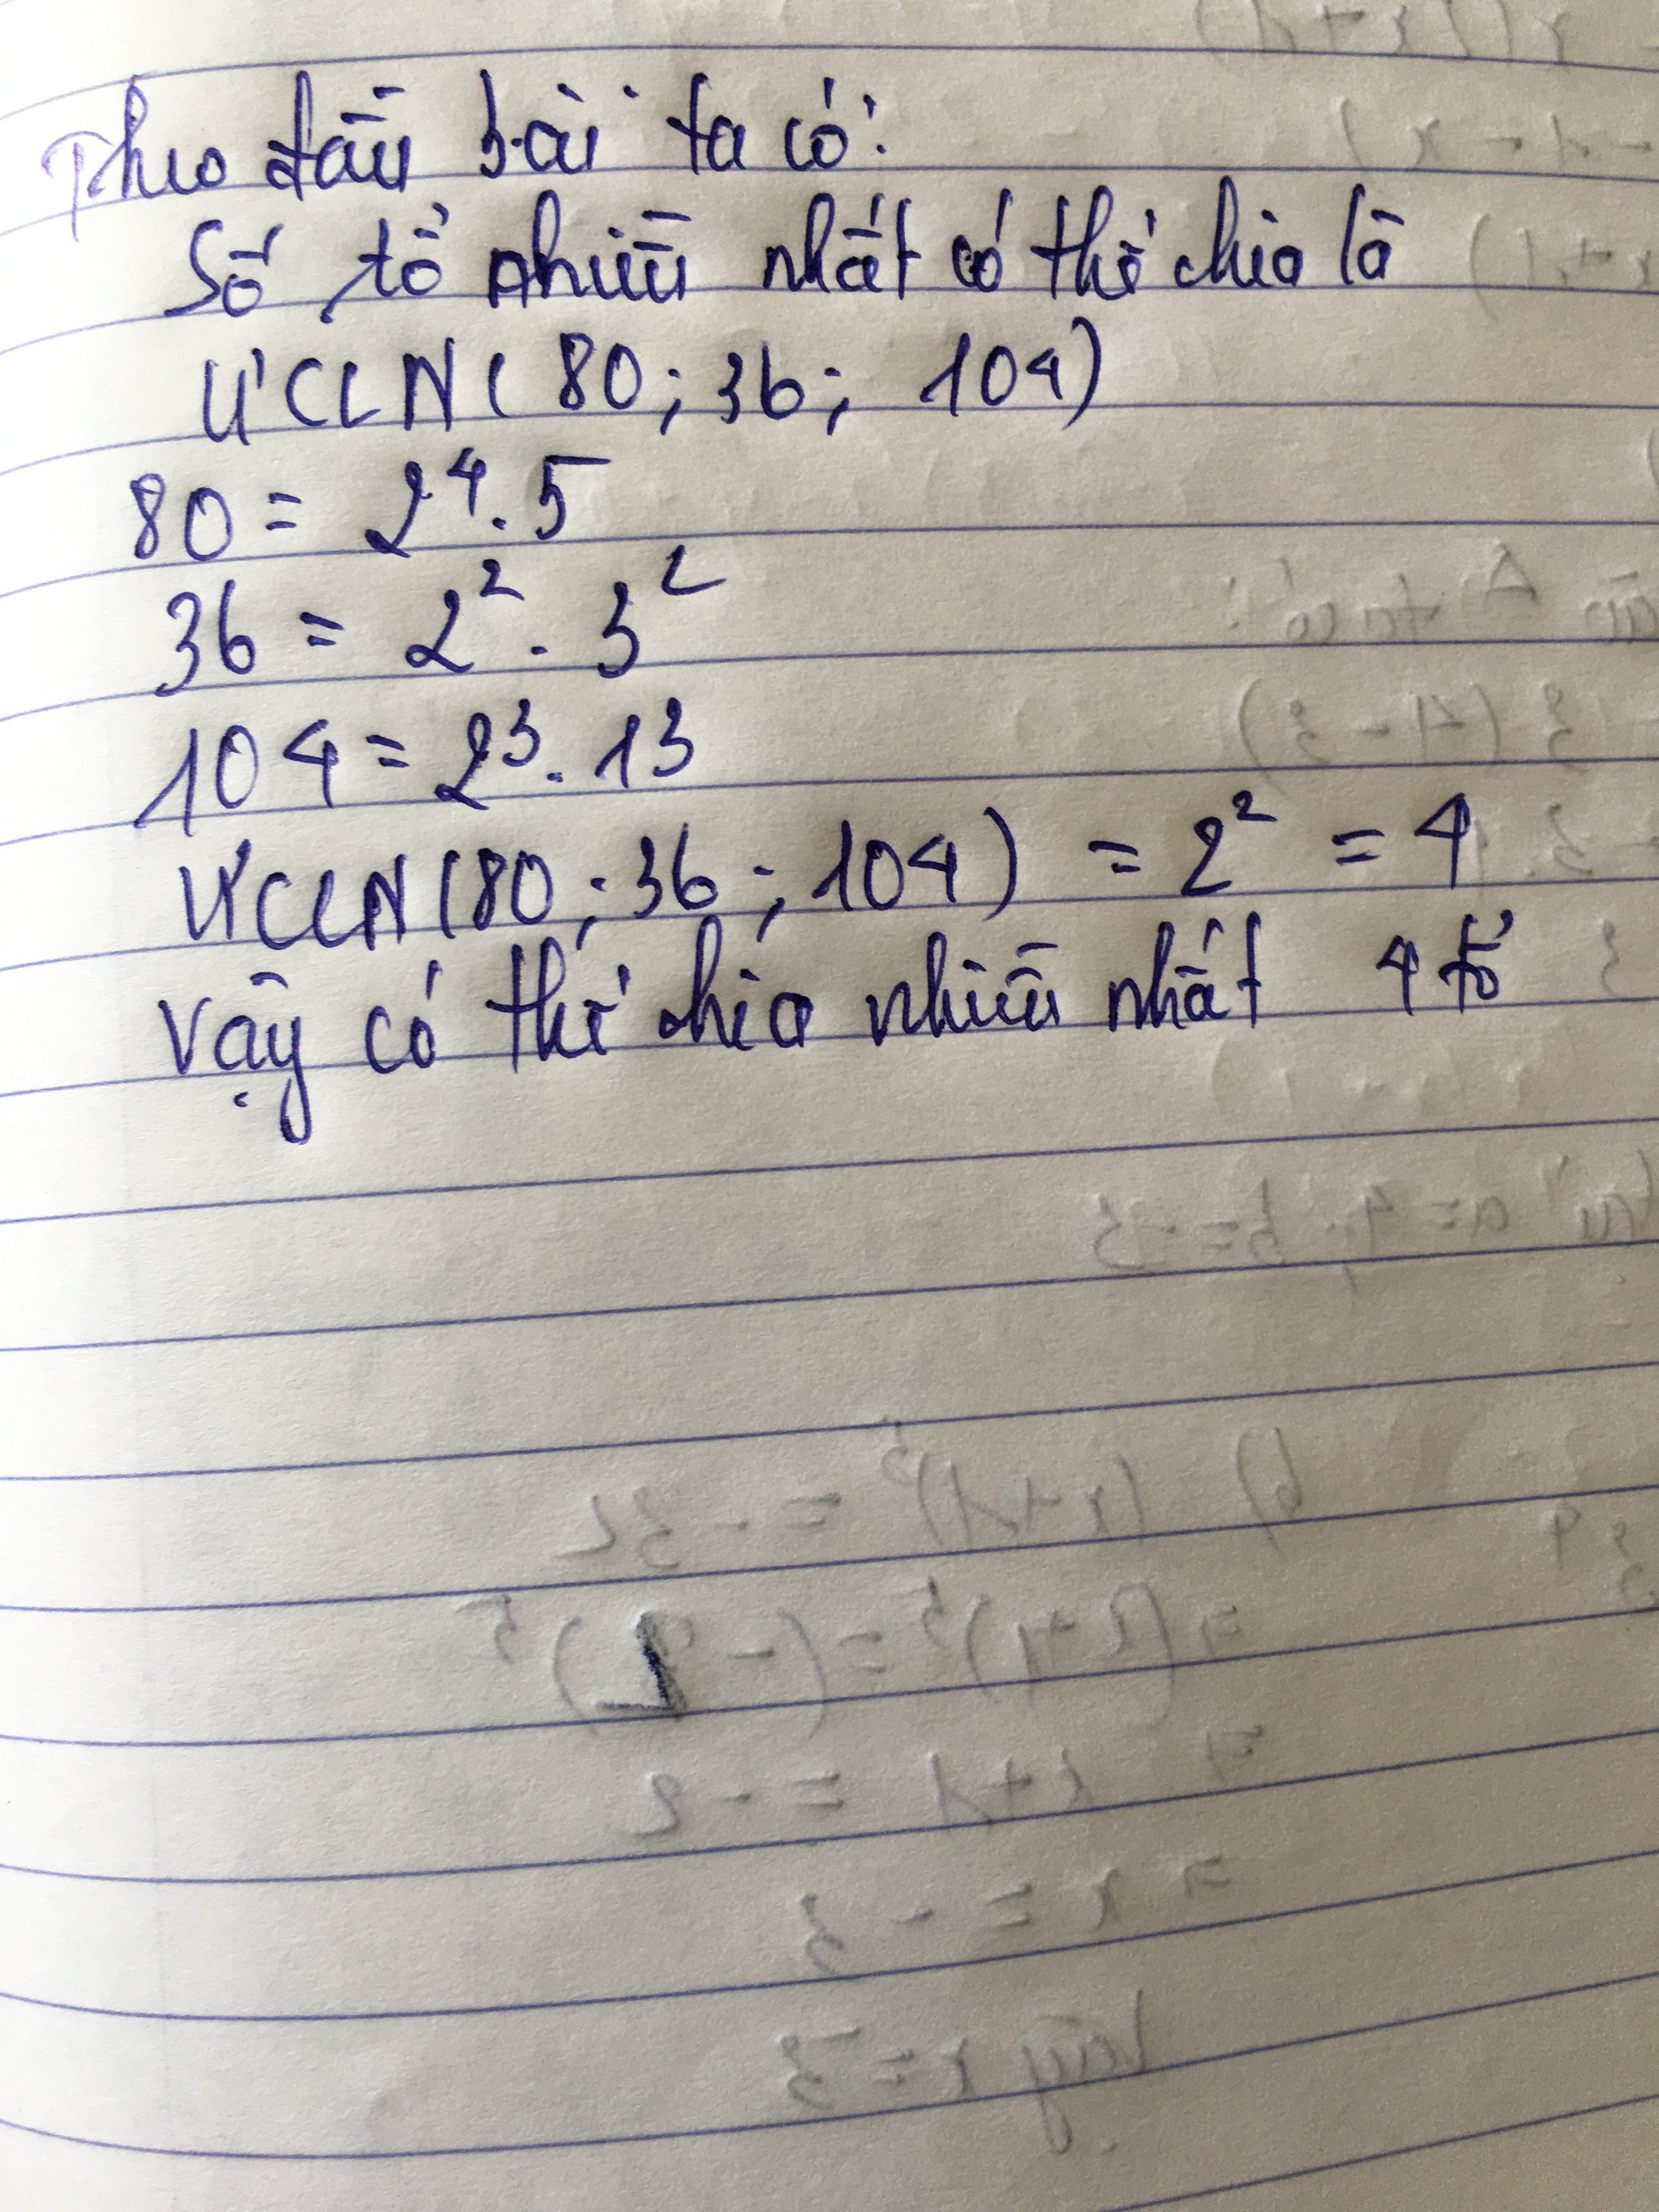 Theo đầu bài ta có:
Số tổ nhiều nhất có thể chia là
ƯCLN( 80; 36; 104)
80 = 2⁴. 5
36 = 2² . 3²
104 = 2³. 13
ƯCLN(80; 36; 104) = 2² = 4
Vậy có thể chia nhiều nhất 4 tổ